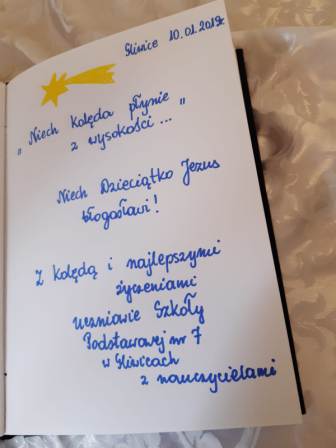 Gliwice 10.01.2019r
„Niech kolęda płynie
z wysokości ..."
Niech Dzieciątko Jezus
błogosławi!
Z kolędą i najlepszymi
życzeniami
uczniowie Szkoły
Podstawowej nr 7
w Gliwicach
z nauczycielami